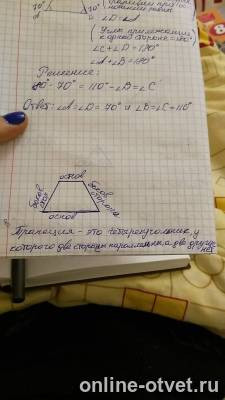 70°
70°
∠D=∠A
(Углы прилежащие к
одной стороне =180°
∠C+∠D=180°
∠A+∠B=180°
Решение:
180°-70° = 110° - ∠B=∠C
Ответ: ∠A=∠D= 70° и ∠B=∠C=110°
основ
боков стор
боков сторона
основ
Трапеция - это четырехугольник, у
которого две стороны параллельны, а две другие
нет.
online-otvet.ru